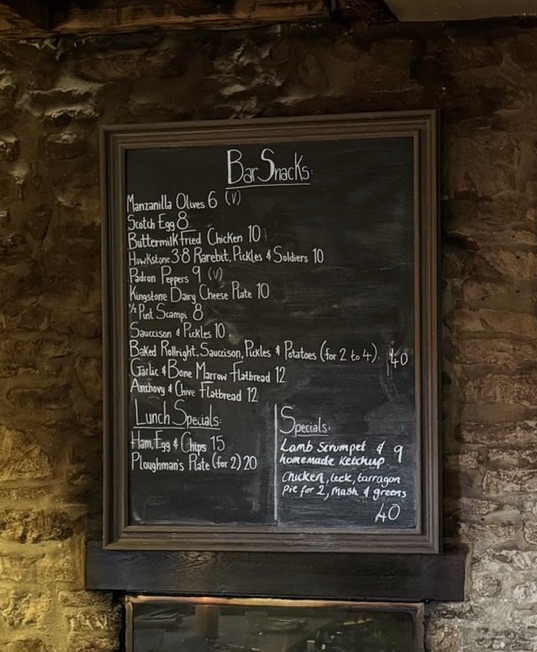 Bar Snacks:
Manzanilla Olives 6 (V)
Scotch Egg 8
Buttermilk fried Chicken 10
Hawkstone 38 Rarebit, Pickles & Soldiers 10
Padron Peppers 9 (V)
Kingstone Dairy Cheese Plate 10
½ Pint Scampi 8
Sauccison & Pickles 10
Baked Rollright, Saucisson, Pickles & Potatoes (for 2 to 4). 40
Garlic & Bone Marrow Flatbread 12
Anchovy & Chive Flatbread 12
Lunch Specials:
Ham, Egg & Chips 15
Ploughman's Plate (for 2) 20
Specials:
Lamb Scrumpet & 9
homemade Ketchup
Chicken, leek, tarragon
Pie for 2, Mash & greens
40